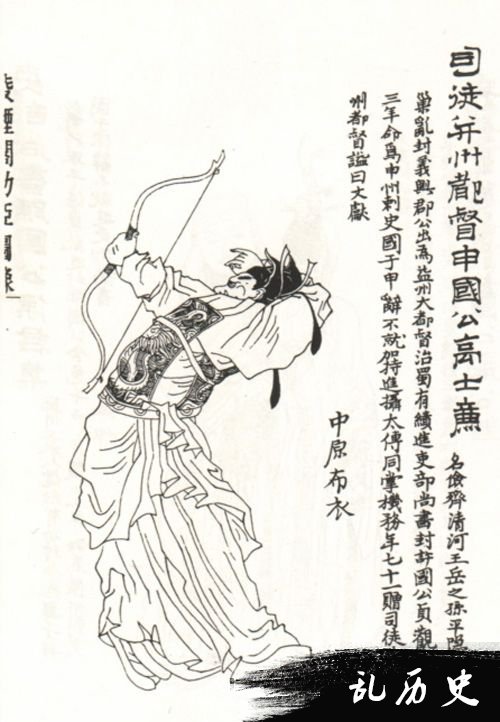 司徒并州都督申國公高士廉
名儉齊清河王岳之孫平隱
巢亂封義興郡公出為益州大都督治蜀有績進吏部尚書封許國公貞觀
三年命爲申州刺史國于申辭不就加特進攝太傅同掌機務年七十一贈司徒
州都督謚曰文獻
中原布衣
凌煙閣功臣圖像
乱历史